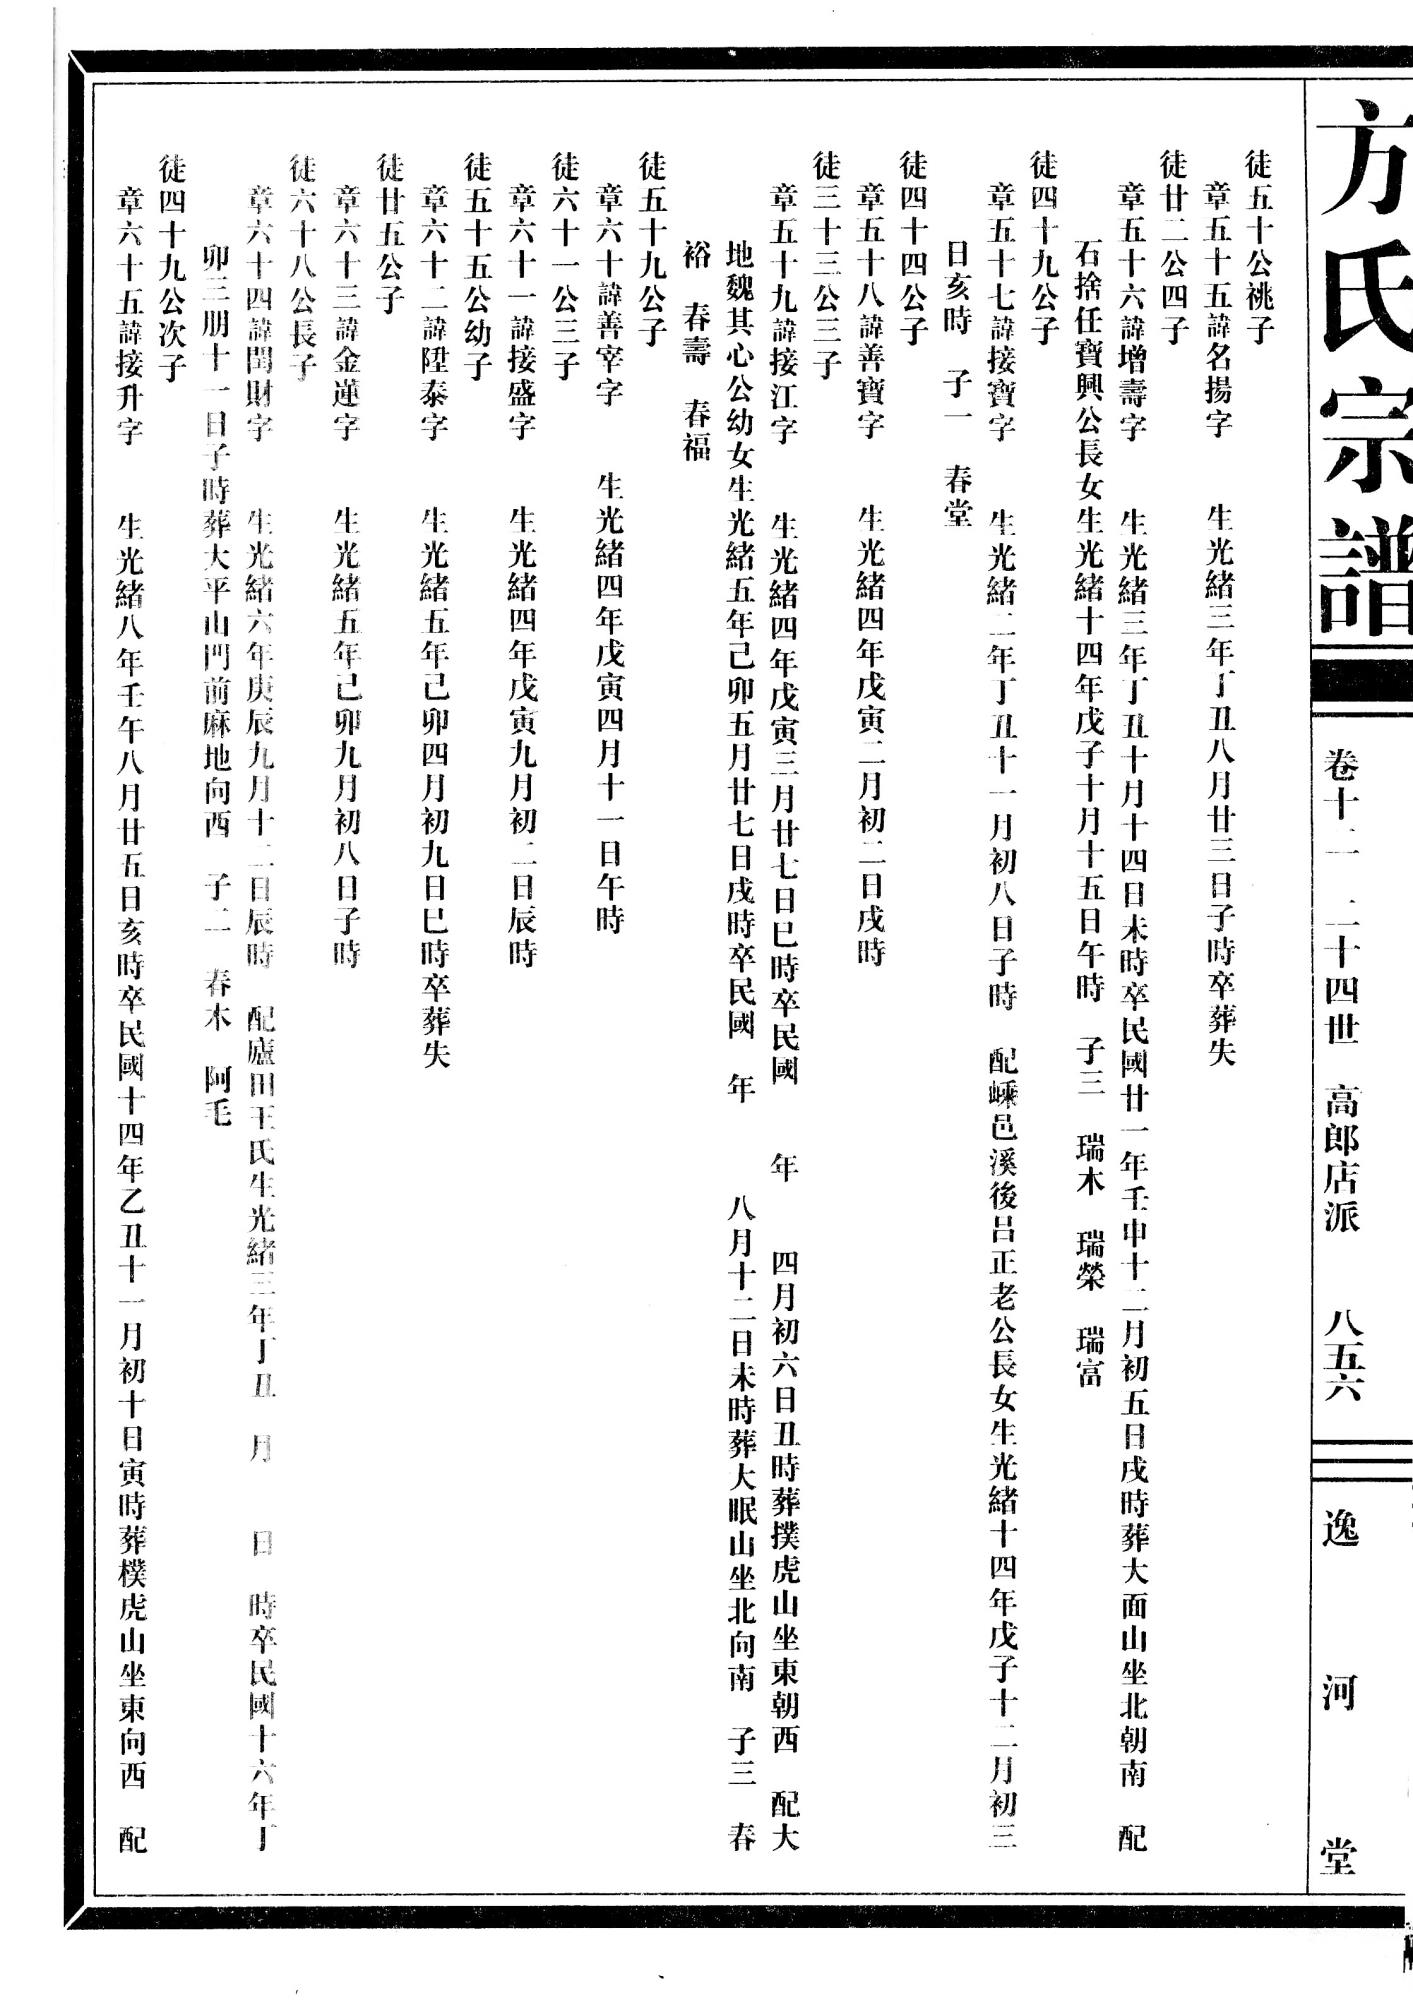 方氏宗譜
卷十二 二十四世 高郎店派 八五六
逸河堂
徒五十公祧子
章五十五諱名揚字 生光緒三年丁丑八月廿三日子時卒葬失
徒廿二公四子
章五十六諱增壽字 生光緒三年丁丑十月十四日未時卒民國廿一年壬申十二月初五日戌時葬大面山坐北朝南 配
石捨任寶興公長女生光緒十四年戊子十月十五日午時 子三 瑞木 瑞榮 瑞富
徒四十九公子
章五十七諱接寶字 生光緒二年丁丑十一月初八日子時 配嵊邑溪後呂正老公長女生光緒十四年戊子十二月初三
日亥時 子一 春堂
徒四十四公子
章五十八諱善寶字 生光緒四年戊寅二月初二日戌時
徒三十三公三子
章五十九諱接江字 生光緒四年戊寅三月廿七日巳時卒民國 年 四月初六日丑時葬撲虎山坐東朝西 配大
地魏其心公幼女生光緒五年己卯五月廿七日戌時卒民國 年 八月十二日未時葬大眠山坐北向南 子三 春
裕 春壽 春福
徒五十九公子
章六十諱善宰字 生光緒四年戊寅四月十一日午時
徒六十一公三子
章六十一諱接盛字 生光緒四年戊寅九月初二日辰時
徒五十五公幼子
章六十二諱陞泰字 生光緒五年己卯四月初九日巳時卒葬失
徒廿五公子
章六十三諱金蓮字 生光緒五年己卯九月初八日子時
徒六十八公長子
章六十四諱閏財字 生光緒六年庚辰九月十二日辰時 配廬田王氏生光緒三年丁丑 月 日 時卒民國十六年丁
卯三朋十一日子時葬大平山門前麻地向西 子二 春木 阿毛
徒四十九公次子
章六十五諱接升字 生光緒八年壬午八月廿五日亥時卒民國十四年乙丑十一月初十日寅時葬樸虎山坐東向西 配